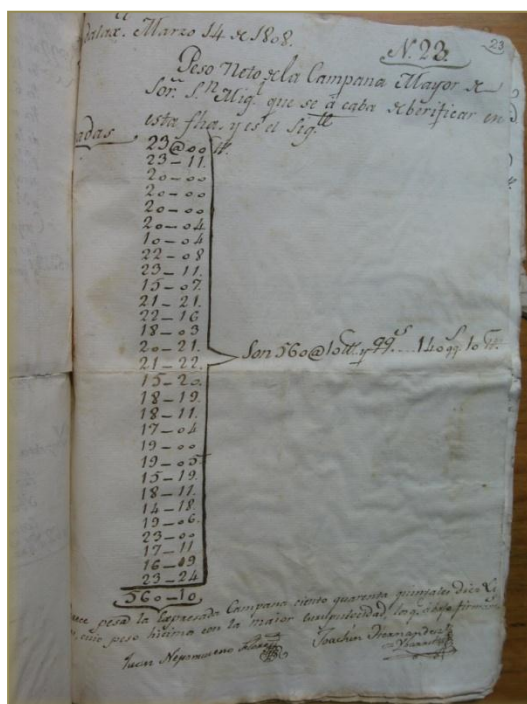 23
Marzo 14 de 1808.
N. 23.
Peso Neto de la Campana Mayor de
Sor. Sn Migl que se á caba de berificar en
esta fha, y es el sigte
adas
23@00 lb.
23-11.
20-00
20-00
20-00
20-04.
10-04
22-08
23-11.
15-07.
21-21.
22-16
18-03
20-21.
21-22.
15-20.
18-19.
18-11.
17-04
19-00
19-05
15-19.
18-11.
14-18.
19-06.
23-00
17-11
16-09
23-24
560-10
Son 560@10 lb. y qqs....140 qqs. 10 lb.
pesa la Expresada Campana ciento quarenta quintales diez Li
peso hicimos con la maior lo qe abajo firmamos
Juan Nepomuceno
Joachin Fernandez